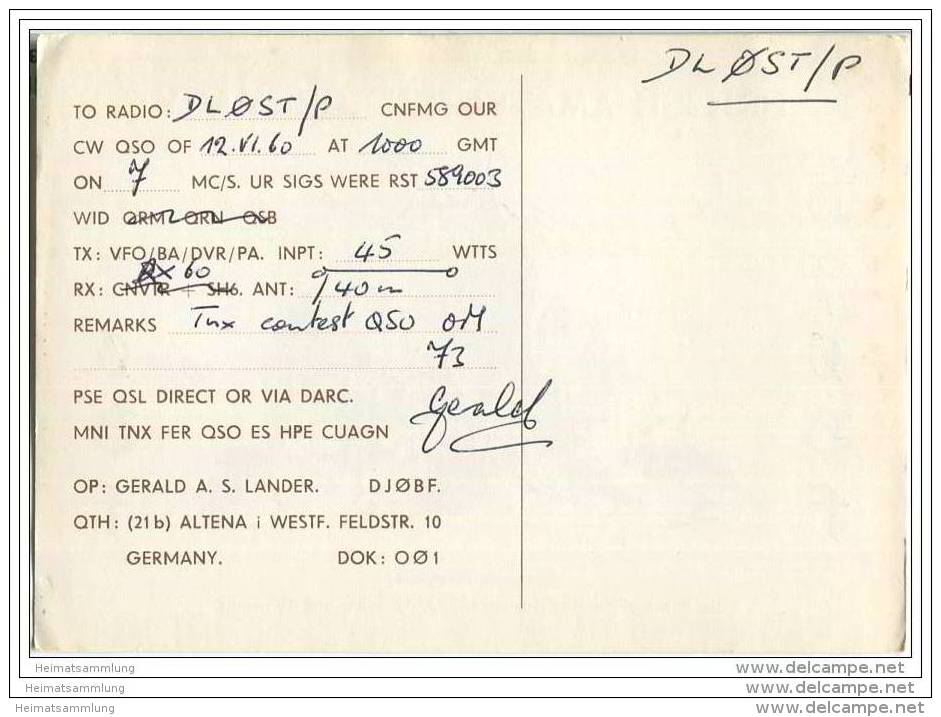 DLØST/P
TO RADIO: DLØST/P CNFMG OUR
CW QSO OF 12.VI.60 AT 1000 GMT
ON 7 MC/S. UR SIGS WERE RST 589003
WID QRM QRN QSB
TX: VFO/BA/DVR/PA. INPT: 45 WTTS
RX 60
RX: CNVTR + SH6. ANT: 40m
REMARKS Tnx contest QSO OM
73
PSE QSL DIRECT OR VIA DARC.
Gerald
MNI TNX FER QSO ES HPE CUAGN
OP: GERALD A. S. LANDER. DJØBF.
QTH: (21b) ALTENA i WESTF. FELDSTR. 10
GERMANY. DOK: OØ1
Heimatsammlung www.delcampe.net
Heimatsammlung www.delcampe.net
Heimatsammlung www.delcampe.net